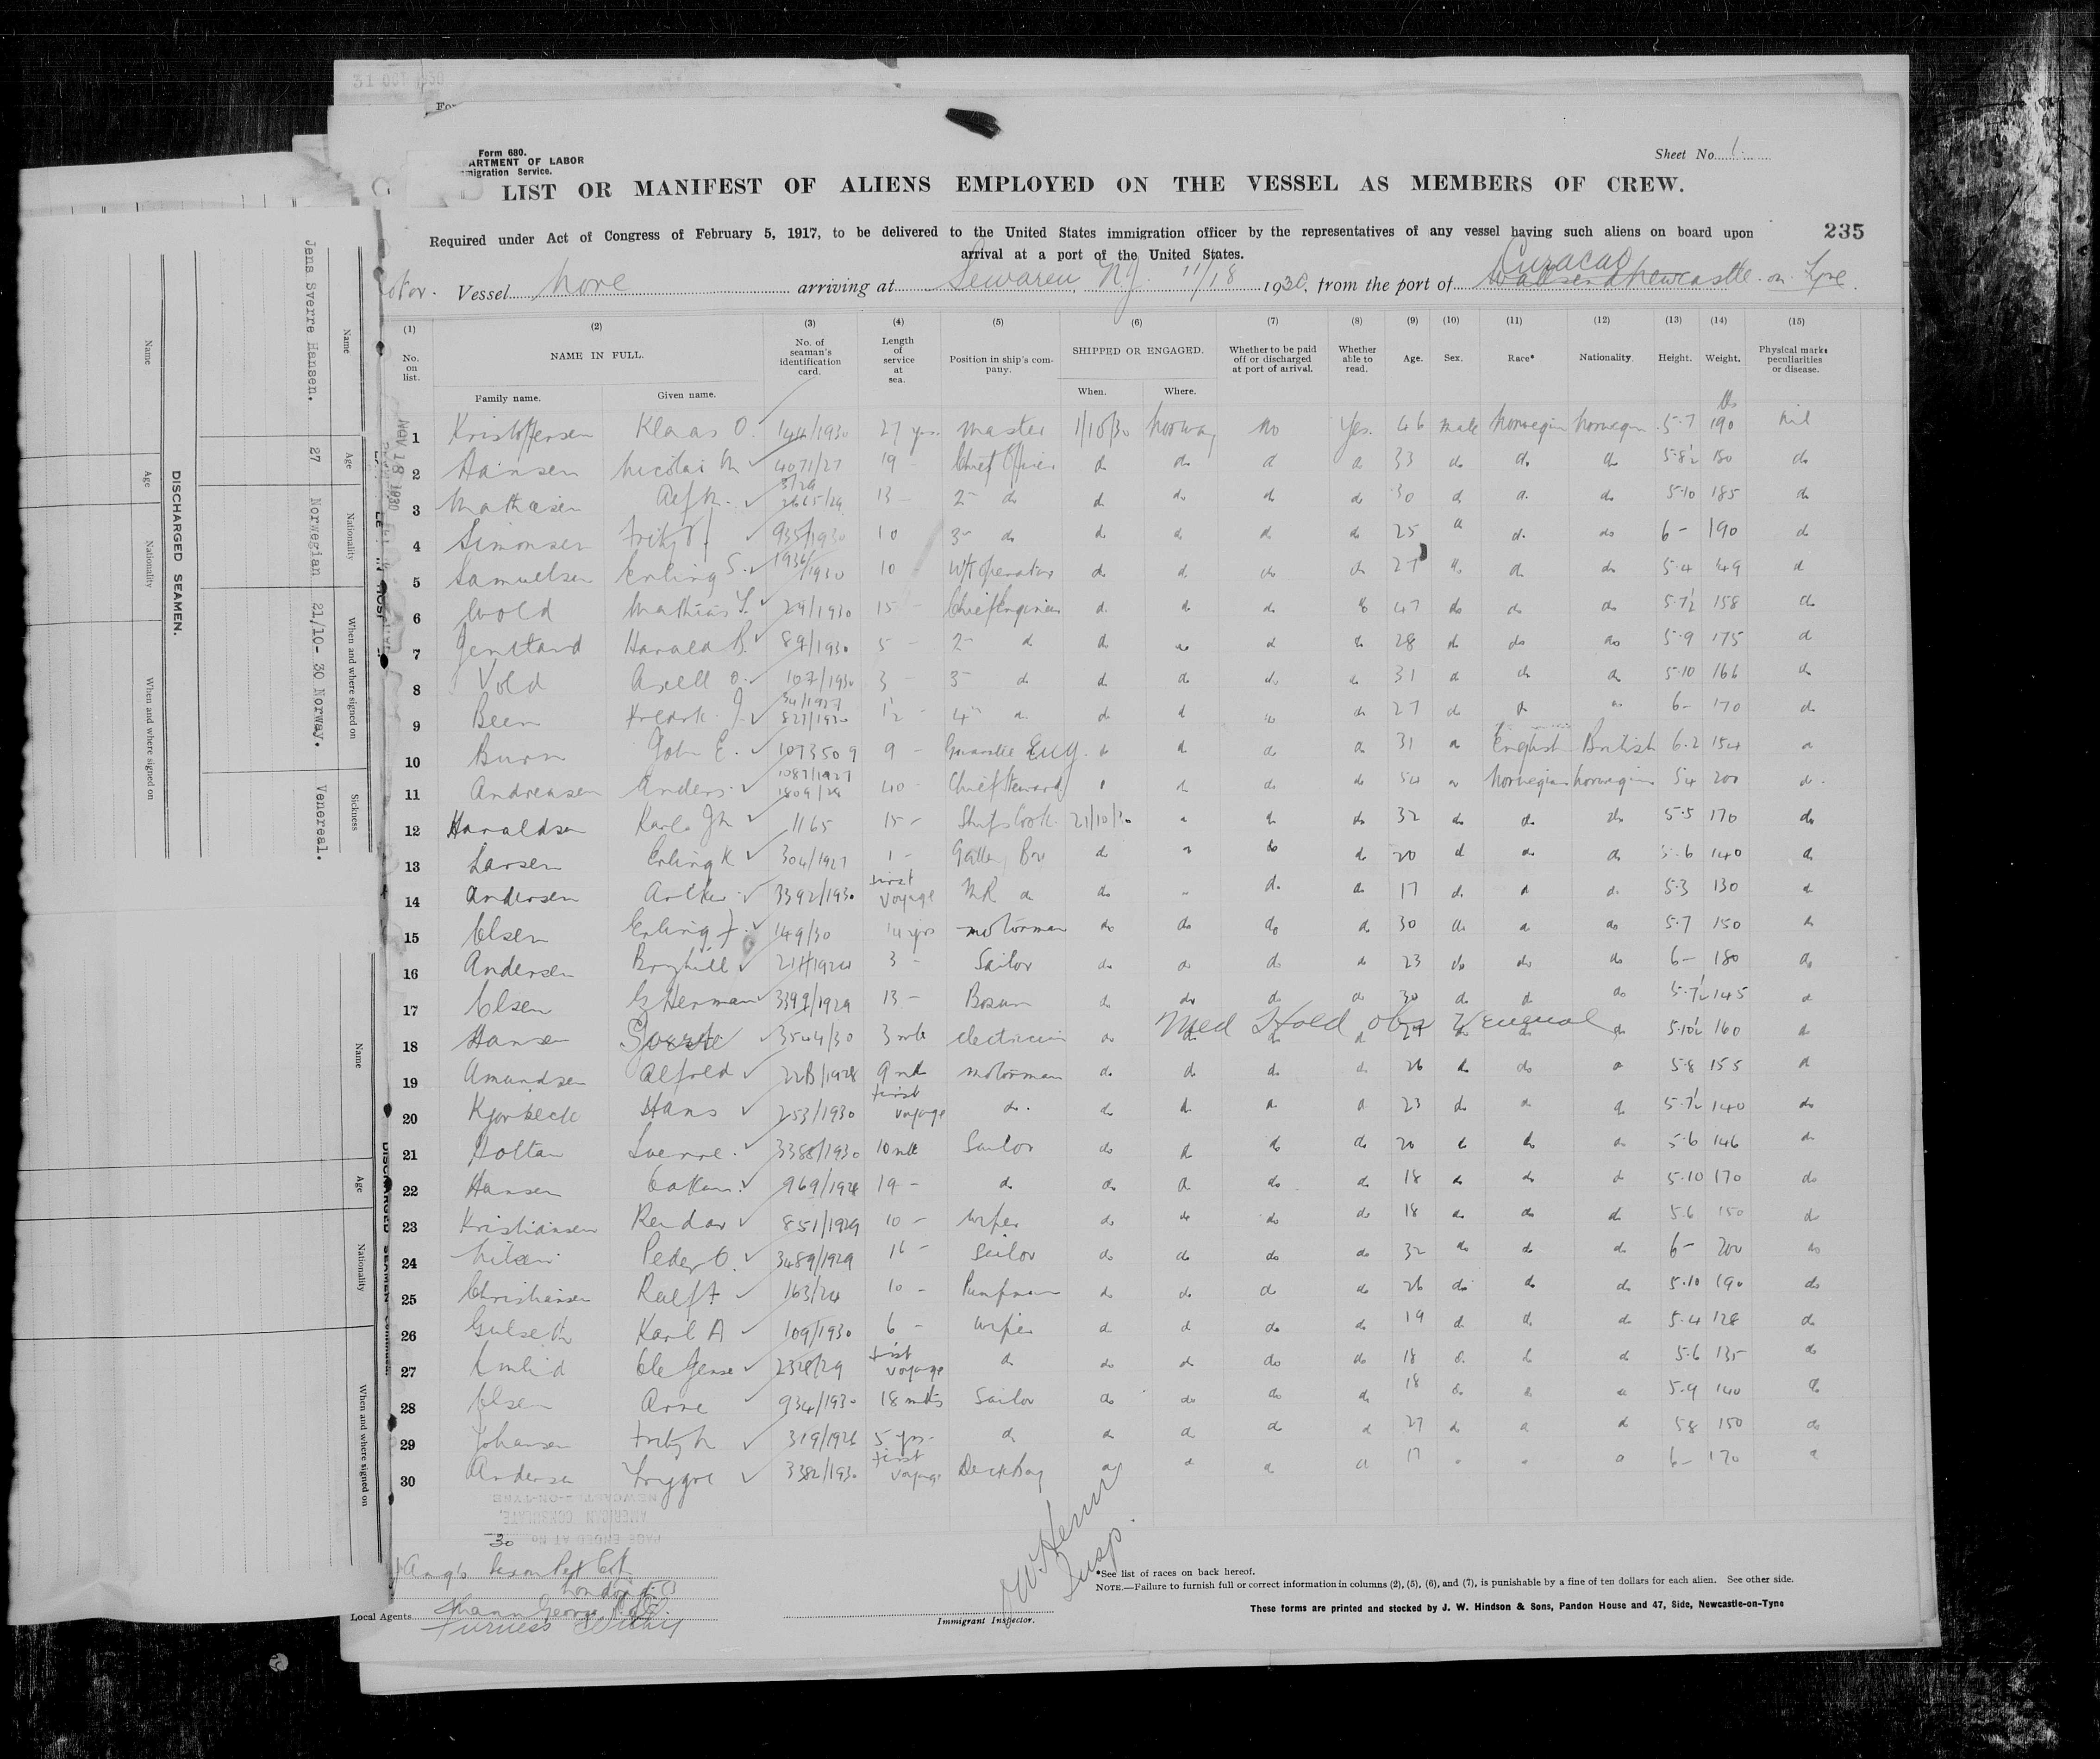 31 OCT 1930
Form 680.
ARTMENT OF LABOR
migration Service.
Sheet No. 1.
LIST OR MANIFEST OF ALIENS EMPLOYED ON THE VESSEL AS MEMBERS OF CREW.
235
Required under Act of Congress of February 5, 1917, to be delivered to the United States immigration officer by the representatives of any vessel having such aliens on board upon
arrival at a port of the United States.
Curacao
Vessel Nore arriving at Sewaren, N.J. 11/18 1930, from the port of Wallsend Newcastle-on-Tyne.
(1) (2) (3) (4) (5) (6) (7) (8) (9) (10) (11) (12) (13) (14) (15)
No. on list. NAME IN FULL. No. of seaman's identification card. Length of service at sea. Position in ship's company. SHIPPED OR ENGAGED. Whether to be paid off or discharged at port of arrival. Whether able to read. Age. Sex. Race* Nationality. Height. Weight. Physical marks peculiarities or disease.
Family name. Given name. When. Where.
NOV 18 1930
1 Kristoffersen Klaas O. 144/1930 27 yrs. Master 1/10/30 Norway No Yes. 46 male Norwegian Norwegian 5-7 190 nil
2 Hansen Nicolai M 4071/27 19 - Chief Officer do do do do 33 do do do 5-8½ 180 do
3 Mathisen Alf 2665/29 13 - 2- do do do do do 30 do do do 5-10 185 do
4 Simonsen Fritz 935/1930 10 3- do do do do do 25 do do do 6- 190 do
5 Samuelsen Erling S. 1936/1930 10 W/T Operator do do do do 27 do do do 5-4 149 do
6 Wold Mathias 29/1930 15 - Chief Engineer do do do do 47 do do do 5-7½ 158 do
7 Harald B. 89/1930 5 - 2- do do do do do 28 do do do 5-9 175 do
8 Vold Axell O. 107/1930 3 - 3- do do do do do 31 do do do 5-10 166 do
9 Been Fredrk. J. 34/1927 827/1930 ½ - 4- do do do do do 27 do do do 6- 170 do
10 Burn John E. 1073509 9 - Guarantee Eng. do do do do 31 do English British 6-2 154 do
11 Andreasen Anders 1087/1927 1809/28 40 - Chief Steward do do do 54 do Norwegian Norwegian 5-4 200 do
12 Haraldsen Karl 1165 15 - Ships Cook 21/10/30 do do do 32 do do do 5-5 170 do
13 Larsen Erling K 304/1927 1 - Galley Boy do do do do 20 do do do 5-6 140 do
14 Andersen Arthur 3392/1930 first voyage M R do do do do 17 do do do 5-3 130 do
15 Olsen Erling F. 149/30 14 yrs motorman do do do do 30 do do do 5-7 150 do
16 Andersen 3 - Sailor do do do do 23 do do do 6- 180 do
17 Olsen G Herman 3399/1929 13 - Bosun do do do do 30 do do do 5-7½ 145 do
Med Hold obs Venereal
18 Hansen Sverre 3544/30 3 mth electrician do do do do 27 do do 5-10½ 160 do
19 Amundsen Alfred 22B/1928 9 mth motorman do do do do 26 do do do 5-8 155 do
20 Kjorbeck Hans 253/1930 first voyage do. do do do do 23 do do do 5-7½ 140 do
21 Holtan Sverre 3388/1930 10 mth Sailor do do do do 20 do do do 5-6 146 do
22 Hansen Haakon 969/1928 19 - do do do do do 18 do do do 5-10 170 do
23 Kristiansen Reidar 851/1929 10 - Wiper do do do do 18 do do do 5-6 150 do
24 Nilsen Peder O. 3489/1929 16 - Sailor do do do do 32 do do do 6- 200 do
25 Christiansen Ralf 163/24 10 - Pumpman do do do do 26 do do do 5-10 190 do
26 Gulseth Karl A 109/1930 6 - Wiper do do do do 19 do do do 5-4 128 do
27 Ole Jense 2328/29 first voyage do do do do do 18 do do do 5-6 135 do
28 Olsen Arne 934/1930 18 mths Sailor do do do do 18 do do do 5-9 140 do
29 Johansen Fritz 319/1926 5 yrs. do do do do do 27 do do do 5-8 150 do
30 Andersen Tryggve 3382/1930 first voyage Deck Boy do do do do 17 do do do 6- 170 do
NEWCASTLE-ON-TYNE
AMERICAN CONSULATE,
PAGE ENDED AT No 30
London
Local Agents Furness Withy
J W Henry
Insp.
Immigrant Inspector.
*See list of races on back hereof.
NOTE.—Failure to furnish full or correct information in columns (2), (5), (6), and (7), is punishable by a fine of ten dollars for each alien. See other side.
These forms are printed and stocked by J. W. Hindson & Sons, Pandon House and 47, Side, Newcastle-on-Tyne
DISCHARGED SEAMEN.
Name Age Nationality When and where signed on Sickness
Jens Sverre Hansen. 27 Norwegian 21/10- 30 Norway. Venereal.
Name Age Nationality When and where signed on
DISCHARGED SEAMEN—Continued.
Name Age Nationality When and where signed on